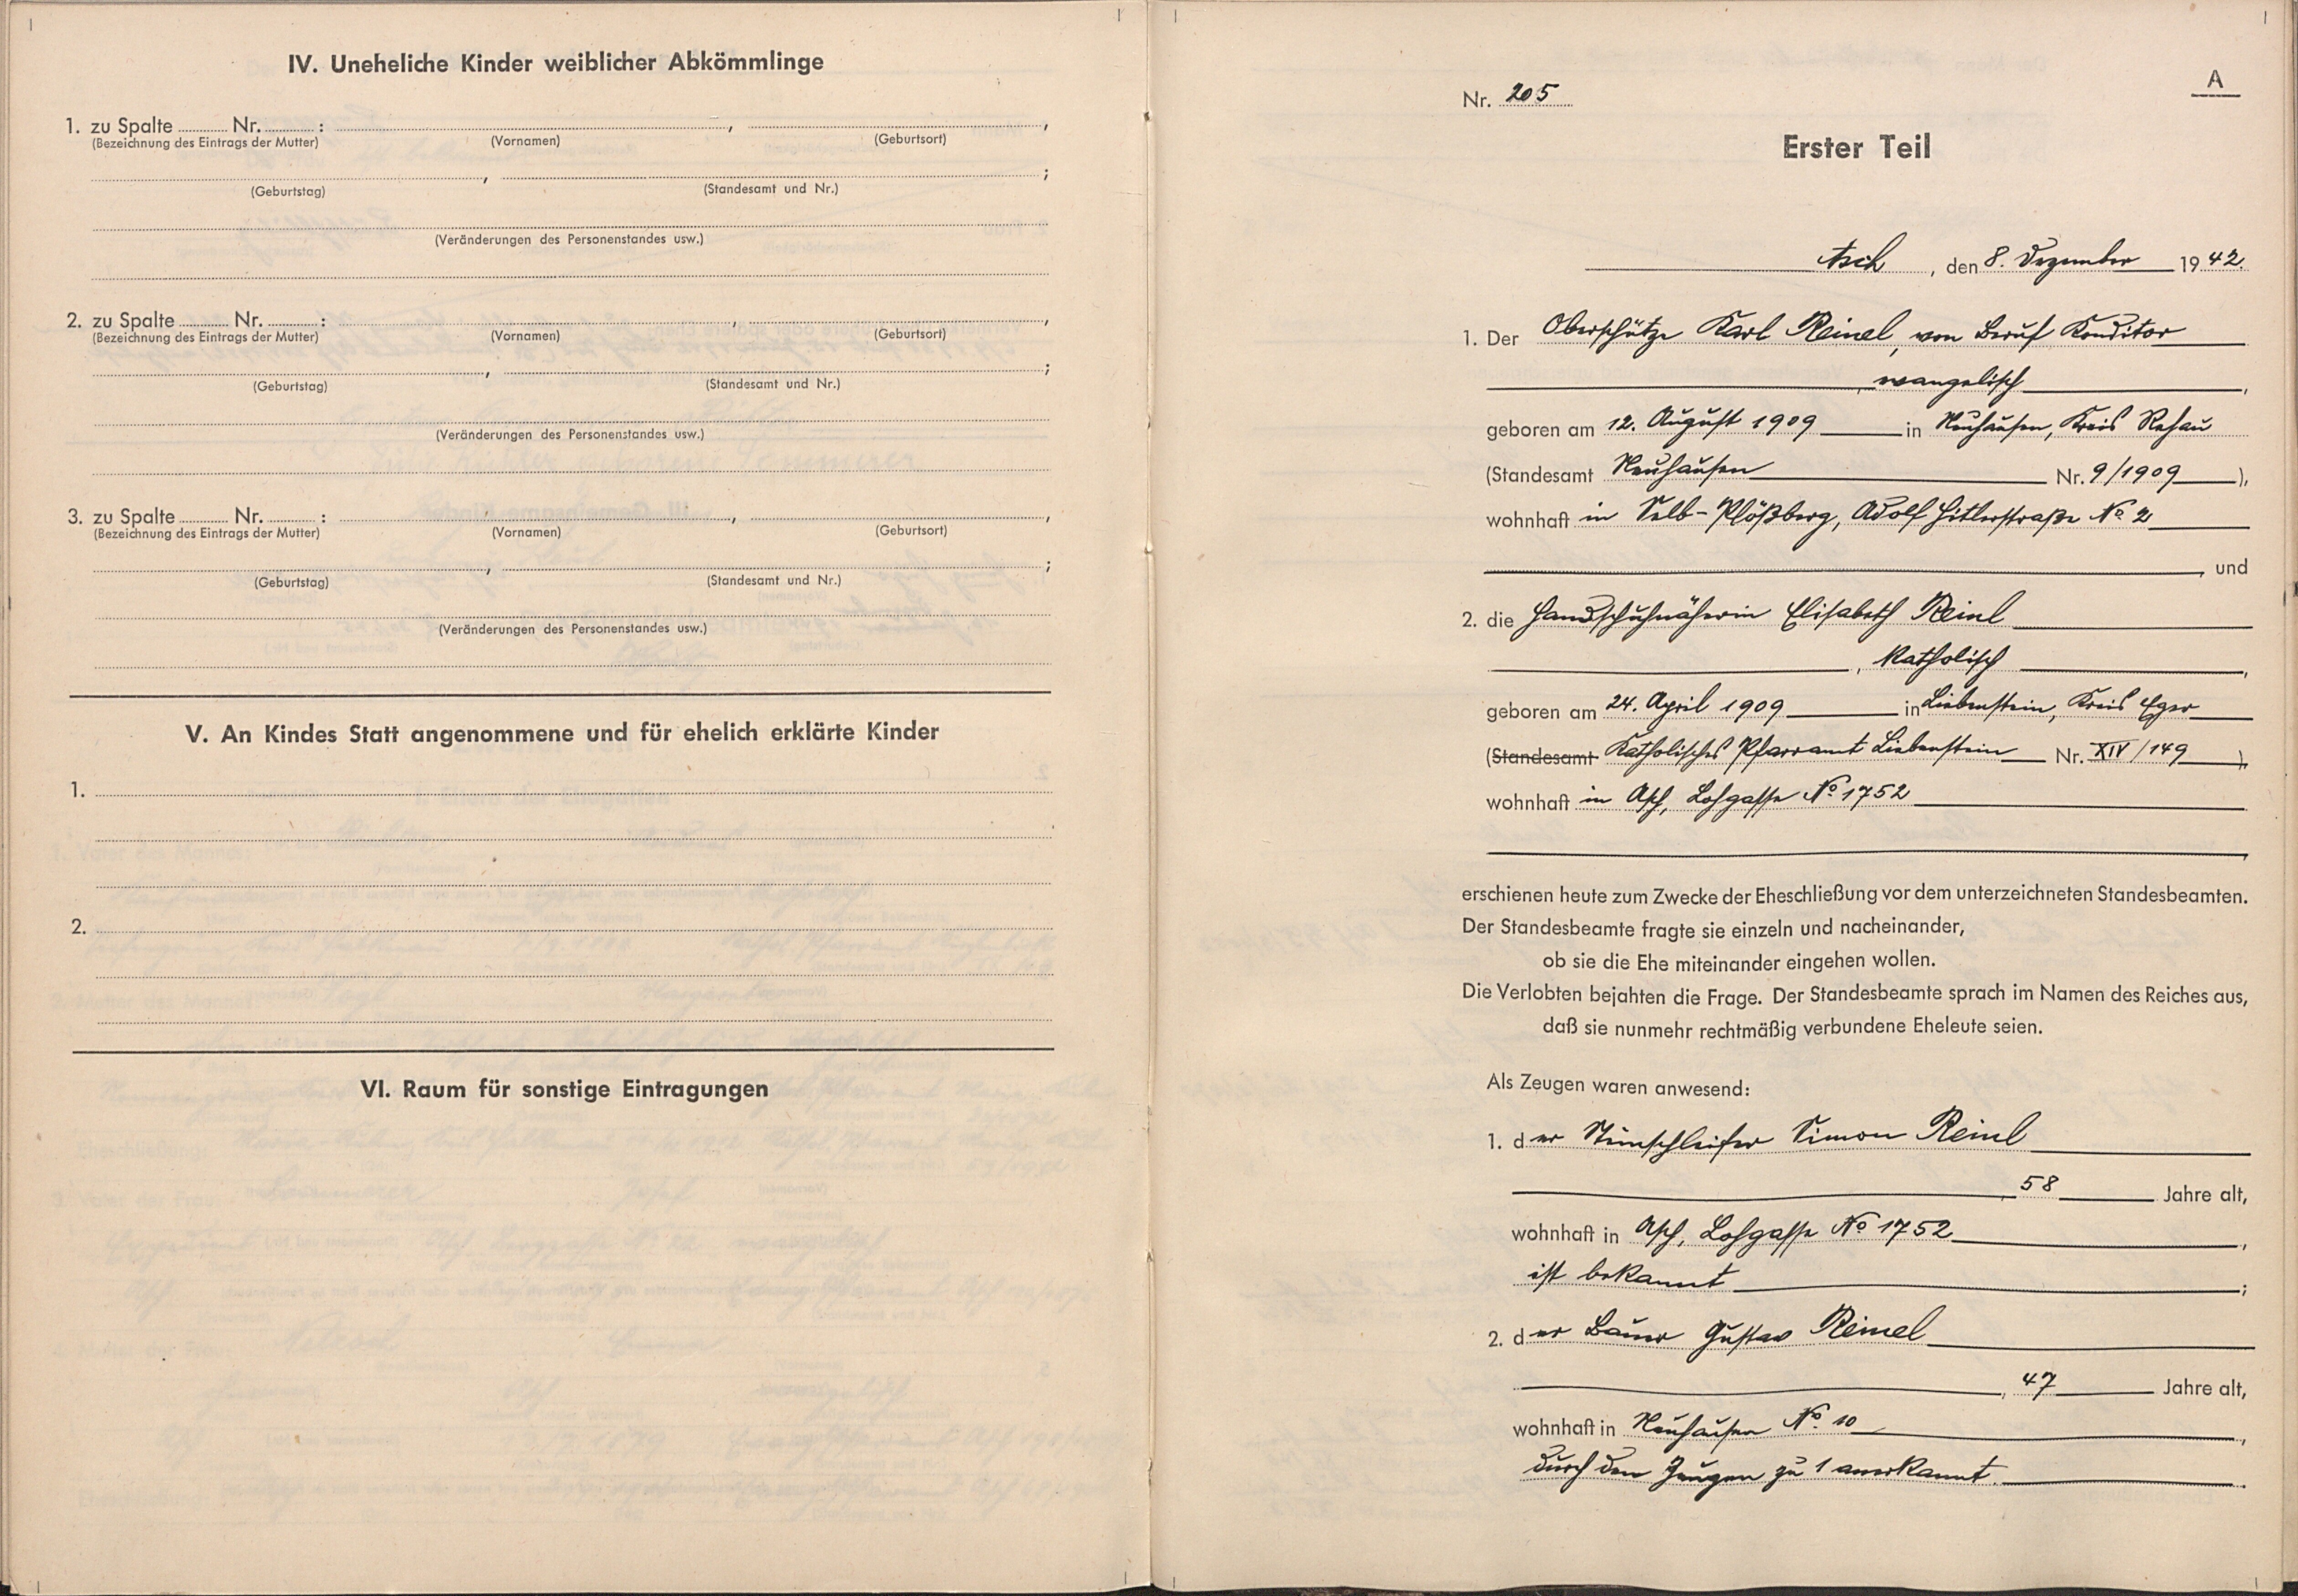 IV. Uneheliche Kinder weiblicher Abkömmlinge
1. zu Spalte ........ Nr. ........ : ........ , ........ ,
(Bezeichnung des Eintrags der Mutter) (Vornamen) (Geburtsort)
........ , ........ ;
(Geburtstag) (Standesamt und Nr.)
(Veränderungen des Personenstandes usw.)
2. zu Spalte ........ Nr. ........ : ........ , ........ ,
(Bezeichnung des Eintrags der Mutter) (Vornamen) (Geburtsort)
........ , ........ ;
(Geburtstag) (Standesamt und Nr.)
(Veränderungen des Personenstandes usw.)
3. zu Spalte ........ Nr. ........ : ........ , ........ ,
(Bezeichnung des Eintrags der Mutter) (Vornamen) (Geburtsort)
........ , ........ ;
(Geburtstag) (Standesamt und Nr.)
(Veränderungen des Personenstandes usw.)
V. An Kindes Statt angenommene und für ehelich erklärte Kinder
1.
2.
VI. Raum für sonstige Eintragungen
A
Nr. 205
Erster Teil
Asch, den 8. Dezember 1942.
1. Der Oberschütze Karl Reinel, von Beruf Konditor
, evangelisch,
geboren am 12. August 1909 in Neuhausen, Kreis Rehau
(Standesamt Neuhausen Nr. 9/1909),
wohnhaft in Selb-Plößberg, Adolf Hitlerstraße No 2
, und
2. die Handschuhnäherin Elisabeth Reinl
, katholisch,
geboren am 24. April 1909 in Liebenstein, Kreis Eger
(Standesamt Katholisches Pfarramt Liebenstein Nr. XIV/149),
wohnhaft in Asch, Lohgasse No 1752
,
erschienen heute zum Zwecke der Eheschließung vor dem unterzeichneten Standesbeamten.
Der Standesbeamte fragte sie einzeln und nacheinander,
ob sie die Ehe miteinander eingehen wollen.
Die Verlobten bejahten die Frage. Der Standesbeamte sprach im Namen des Reiches aus,
daß sie nunmehr rechtmäßig verbundene Eheleute seien.
Als Zeugen waren anwesend:
1. der Steinschleifer Simon Reinl
, 58 Jahre alt,
wohnhaft in Asch, Lohgasse No 1752,
ist bekannt;
2. der Bauer Gustav Reinel
, 47 Jahre alt,
wohnhaft in Neuhausen No 10,
durch den Zeugen zu 1 anerkannt.